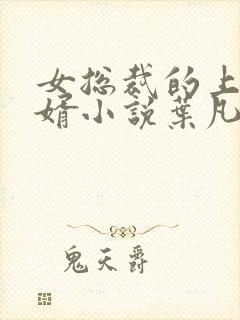 女总裁的上
婿小说葉凡
鬼天爵